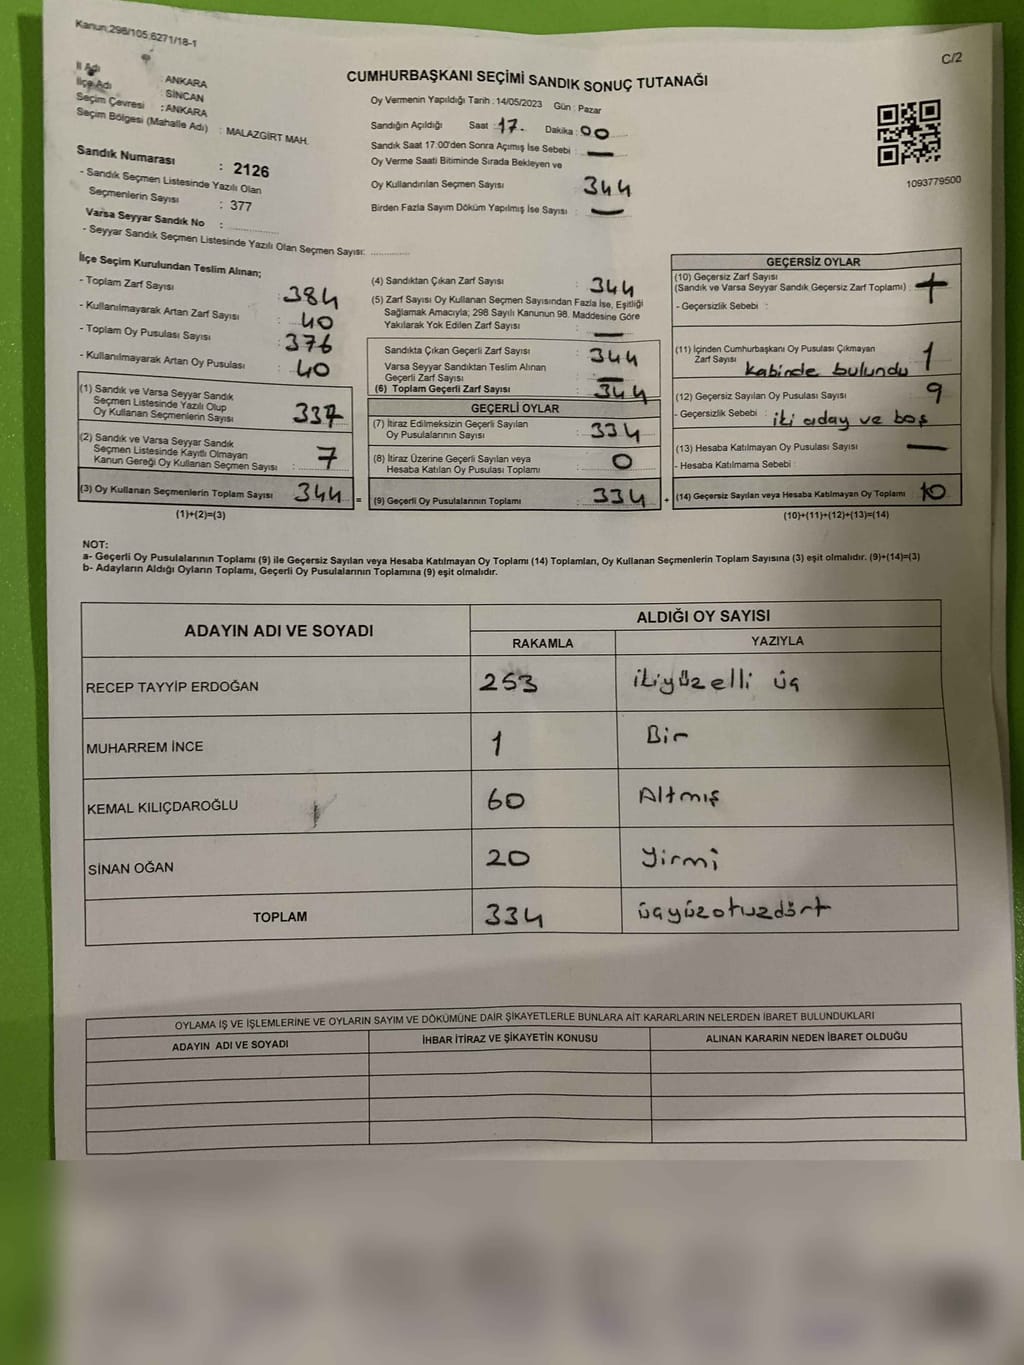 Kanun:298/105;6271/18-1
C/2
CUMHURBAŞKANI SEÇİMİ SANDIK SONUÇ TUTANAĞI
İl Adı : ANKARA
İlçe Adı : SİNCAN
Seçim Çevresi : ANKARA
Seçim Bölgesi (Mahalle Adı) : MALAZGİRT MAH.
Sandık Numarası : 2126
- Sandık Seçmen Listesinde Yazılı Olan
Seçmenlerin Sayısı : 377
Varsa Seyyar Sandık No :
- Seyyar Sandık Seçmen Listesinde Yazılı Olan Seçmen Sayısı:
Oy Vermenin Yapıldığı Tarih : 14/05/2023 Gün : Pazar
Sandığın Açıldığı Saat : 17. Dakika : 00
Sandık Saat 17:00'den Sonra Açımış İse Sebebi : —
Oy Verme Saati Bitiminde Sırada Bekleyen ve
Oy Kullandırılan Seçmen Sayısı : 344
Birden Fazla Sayım Döküm Yapılmış İse Sayısı : —
1093779500
İlçe Seçim Kurulundan Teslim Alınan;
- Toplam Zarf Sayısı : 384
- Kullanılmayarak Artan Zarf Sayısı : 40
- Toplam Oy Pusulası Sayısı : 376
- Kullanılmayarak Artan Oy Pusulası : 40
(1) Sandık ve Varsa Seyyar Sandık
Seçmen Listesinde Yazılı Olup
Oy Kullanan Seçmenlerin Sayısı : 337
(2) Sandık ve Varsa Seyyar Sandık
Seçmen Listesinde Kayıtlı Olmayan
Kanun Gereği Oy Kullanan Seçmen Sayısı : 7
(3) Oy Kullanan Seçmenlerin Toplam Sayısı 344 =
(1)+(2)=(3)
(4) Sandıktan Çıkan Zarf Sayısı : 344
(5) Zarf Sayısı Oy Kullanan Seçmen Sayısından Fazla İse, Eşitliği
Sağlamak Amacıyla; 298 Sayılı Kanunun 98. Maddesine Göre
Yakılarak Yok Edilen Zarf Sayısı : —
Sandıkta Çıkan Geçerli Zarf Sayısı : 344
Varsa Seyyar Sandıktan Teslim Alınan
Geçerli Zarf Sayısı : —
(6) Toplam Geçerli Zarf Sayısı : 344
GEÇERLİ OYLAR
(7) İtiraz Edilmeksizin Geçerli Sayılan
Oy Pusulalarının Sayısı : 334
(8) İtiraz Üzerine Geçerli Sayılan veya
Hesaba Katılan Oy Pusulası Toplamı : 0
(9) Geçerli Oy Pusulalarının Toplamı : 334 +
GEÇERSİZ OYLAR
(10) Geçersiz Zarf Sayısı
(Sandık ve Varsa Seyyar Sandık Geçersiz Zarf Toplamı) :
- Geçersizlik Sebebi :
(11) İçinden Cumhurbaşkanı Oy Pusulası Çıkmayan
Zarf Sayısı : 1
Kabinde bulundu
(12) Geçersiz Sayılan Oy Pusulası Sayısı : 9
- Geçersizlik Sebebi : iki aday ve boş
(13) Hesaba Katılmayan Oy Pusulası Sayısı : —
- Hesaba Katılmama Sebebi :
(14) Geçersiz Sayılan veya Hesaba Katılmayan Oy Toplamı : 10
(10)+(11)+(12)+(13)=(14)
NOT:
a- Geçerli Oy Pusulalarının Toplamı (9) ile Geçersiz Sayılan veya Hesaba Katılmayan Oy Toplamı (14) Toplamları, Oy Kullanan Seçmenlerin Toplam Sayısına (3) eşit olmalıdır. (9)+(14)=(3)
b- Adayların Aldığı Oyların Toplamı, Geçerli Oy Pusulalarının Toplamına (9) eşit olmalıdır.
ADAYIN ADI VE SOYADI ALDIĞI OY SAYISI
RAKAMLA YAZIYLA
RECEP TAYYİP ERDOĞAN 253 ikiyüzelli üç
MUHARREM İNCE 1 Bir
KEMAL KILIÇDAROĞLU 60 Altmış
SİNAN OĞAN 20 Yirmi
TOPLAM 334 üçyüzotuzdört
OYLAMA İŞ VE İŞLEMLERİNE VE OYLARIN SAYIM VE DÖKÜMÜNE DAİR ŞİKAYETLERLE BUNLARA AİT KARARLARIN NELERDEN İBARET BULUNDUKLARI
ADAYIN ADI VE SOYADI İHBAR İTİRAZ VE ŞİKAYETİN KONUSU ALINAN KARARIN NEDEN İBARET OLDUĞU